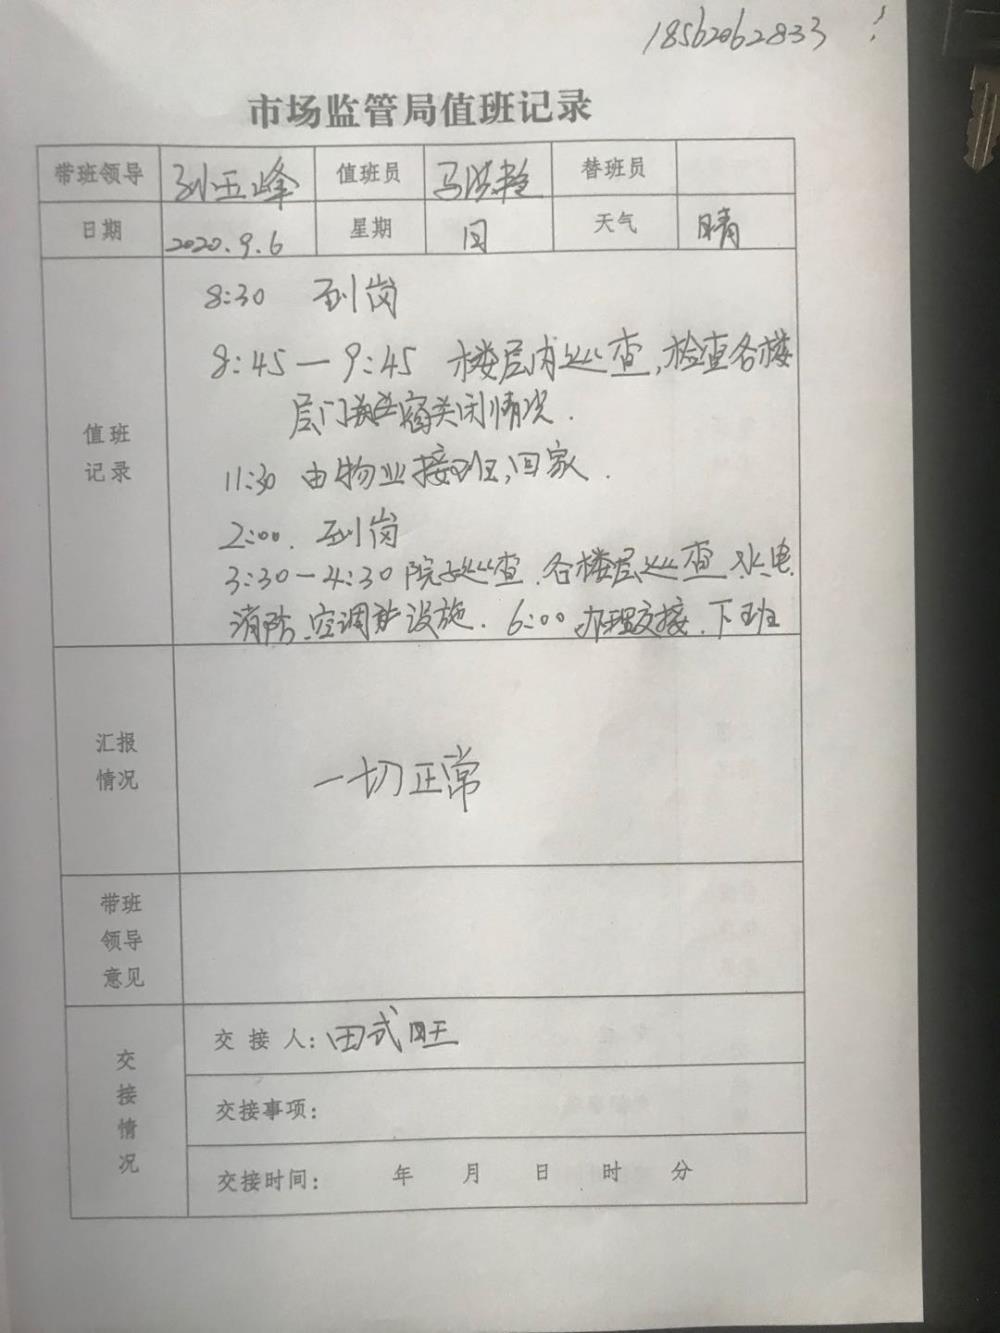 18562062833
市场监管局值班记录
带班领导 孙玉峰 值班员 马洪艳 替班员
日期 2020.9.6 星期 日 天气 晴
值班记录
8:30 到岗
8:45—9:45 楼层内巡查,检查各楼
层门窗关闭情况.
11:30 由物业接班,回家.
2:00. 到岗
3:30-4:30 院子巡查.各楼层巡查.水电
消防、空调等设施. 6:00办理交接.下班
汇报情况
一切正常
带班领导意见
交接情况
交接人:田式旺
交接事项:
交接时间: 年 月 日 时 分